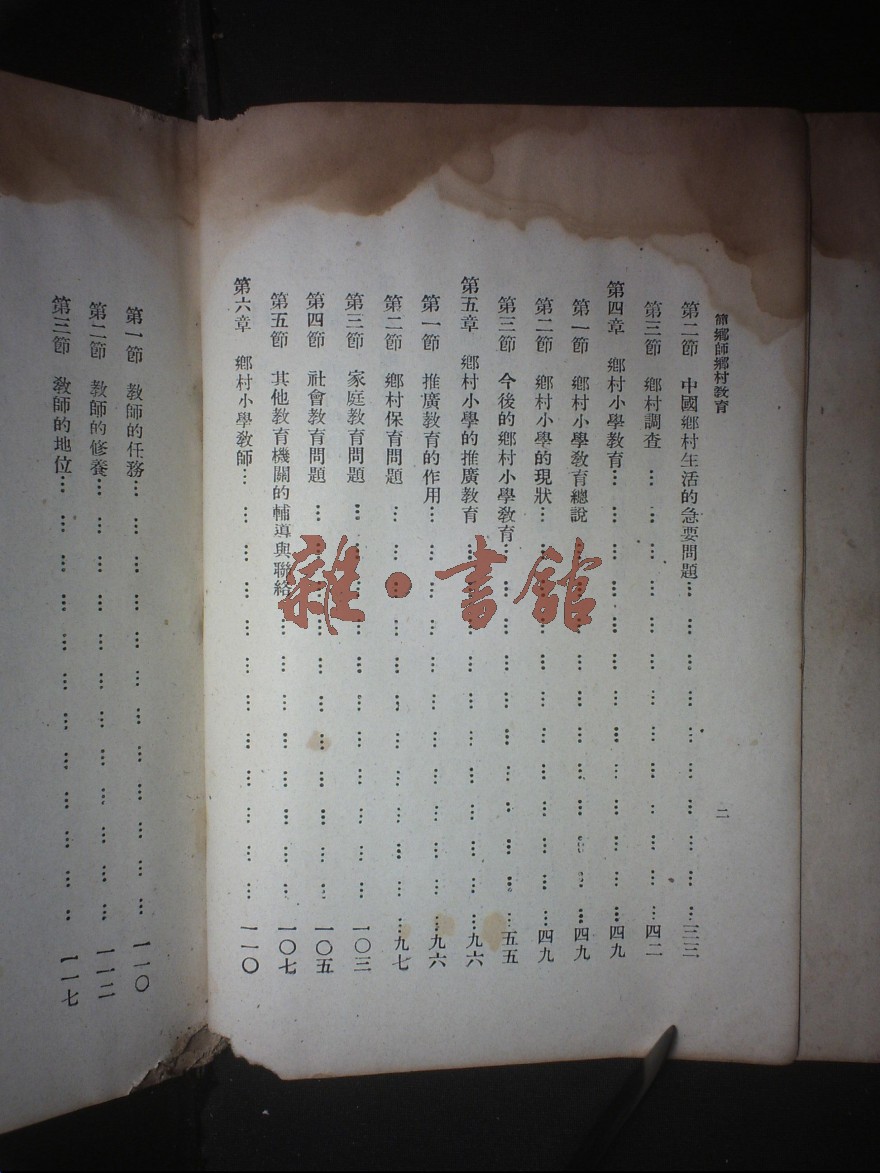 簡鄉師鄉村教育
二
第二節 中國鄉村生活的急要問題…………三三
第三節 鄉村調查…………四二
第四章 鄉村小學教育…………四九
第一節 鄉村小學教育總說…………四九
第二節 鄉村小學的現狀…………四九
第三節 今後的鄉村小學教育…………五五
第五章 鄉村小學的推廣教育…………九六
第一節 推廣教育的作用…………九六
第二節 鄉村保育問題…………九七
第三節 家庭教育問題…………一〇三
第四節 社會教育問題…………一〇五
第五節 其他教育機關的輔導與聯絡…………一〇七
第六章 鄉村小學教師…………一一〇
第一節 教師的任務…………一一〇
第二節 教師的修養…………一一二
第三節 教師的地位…………一一七
雜·書館